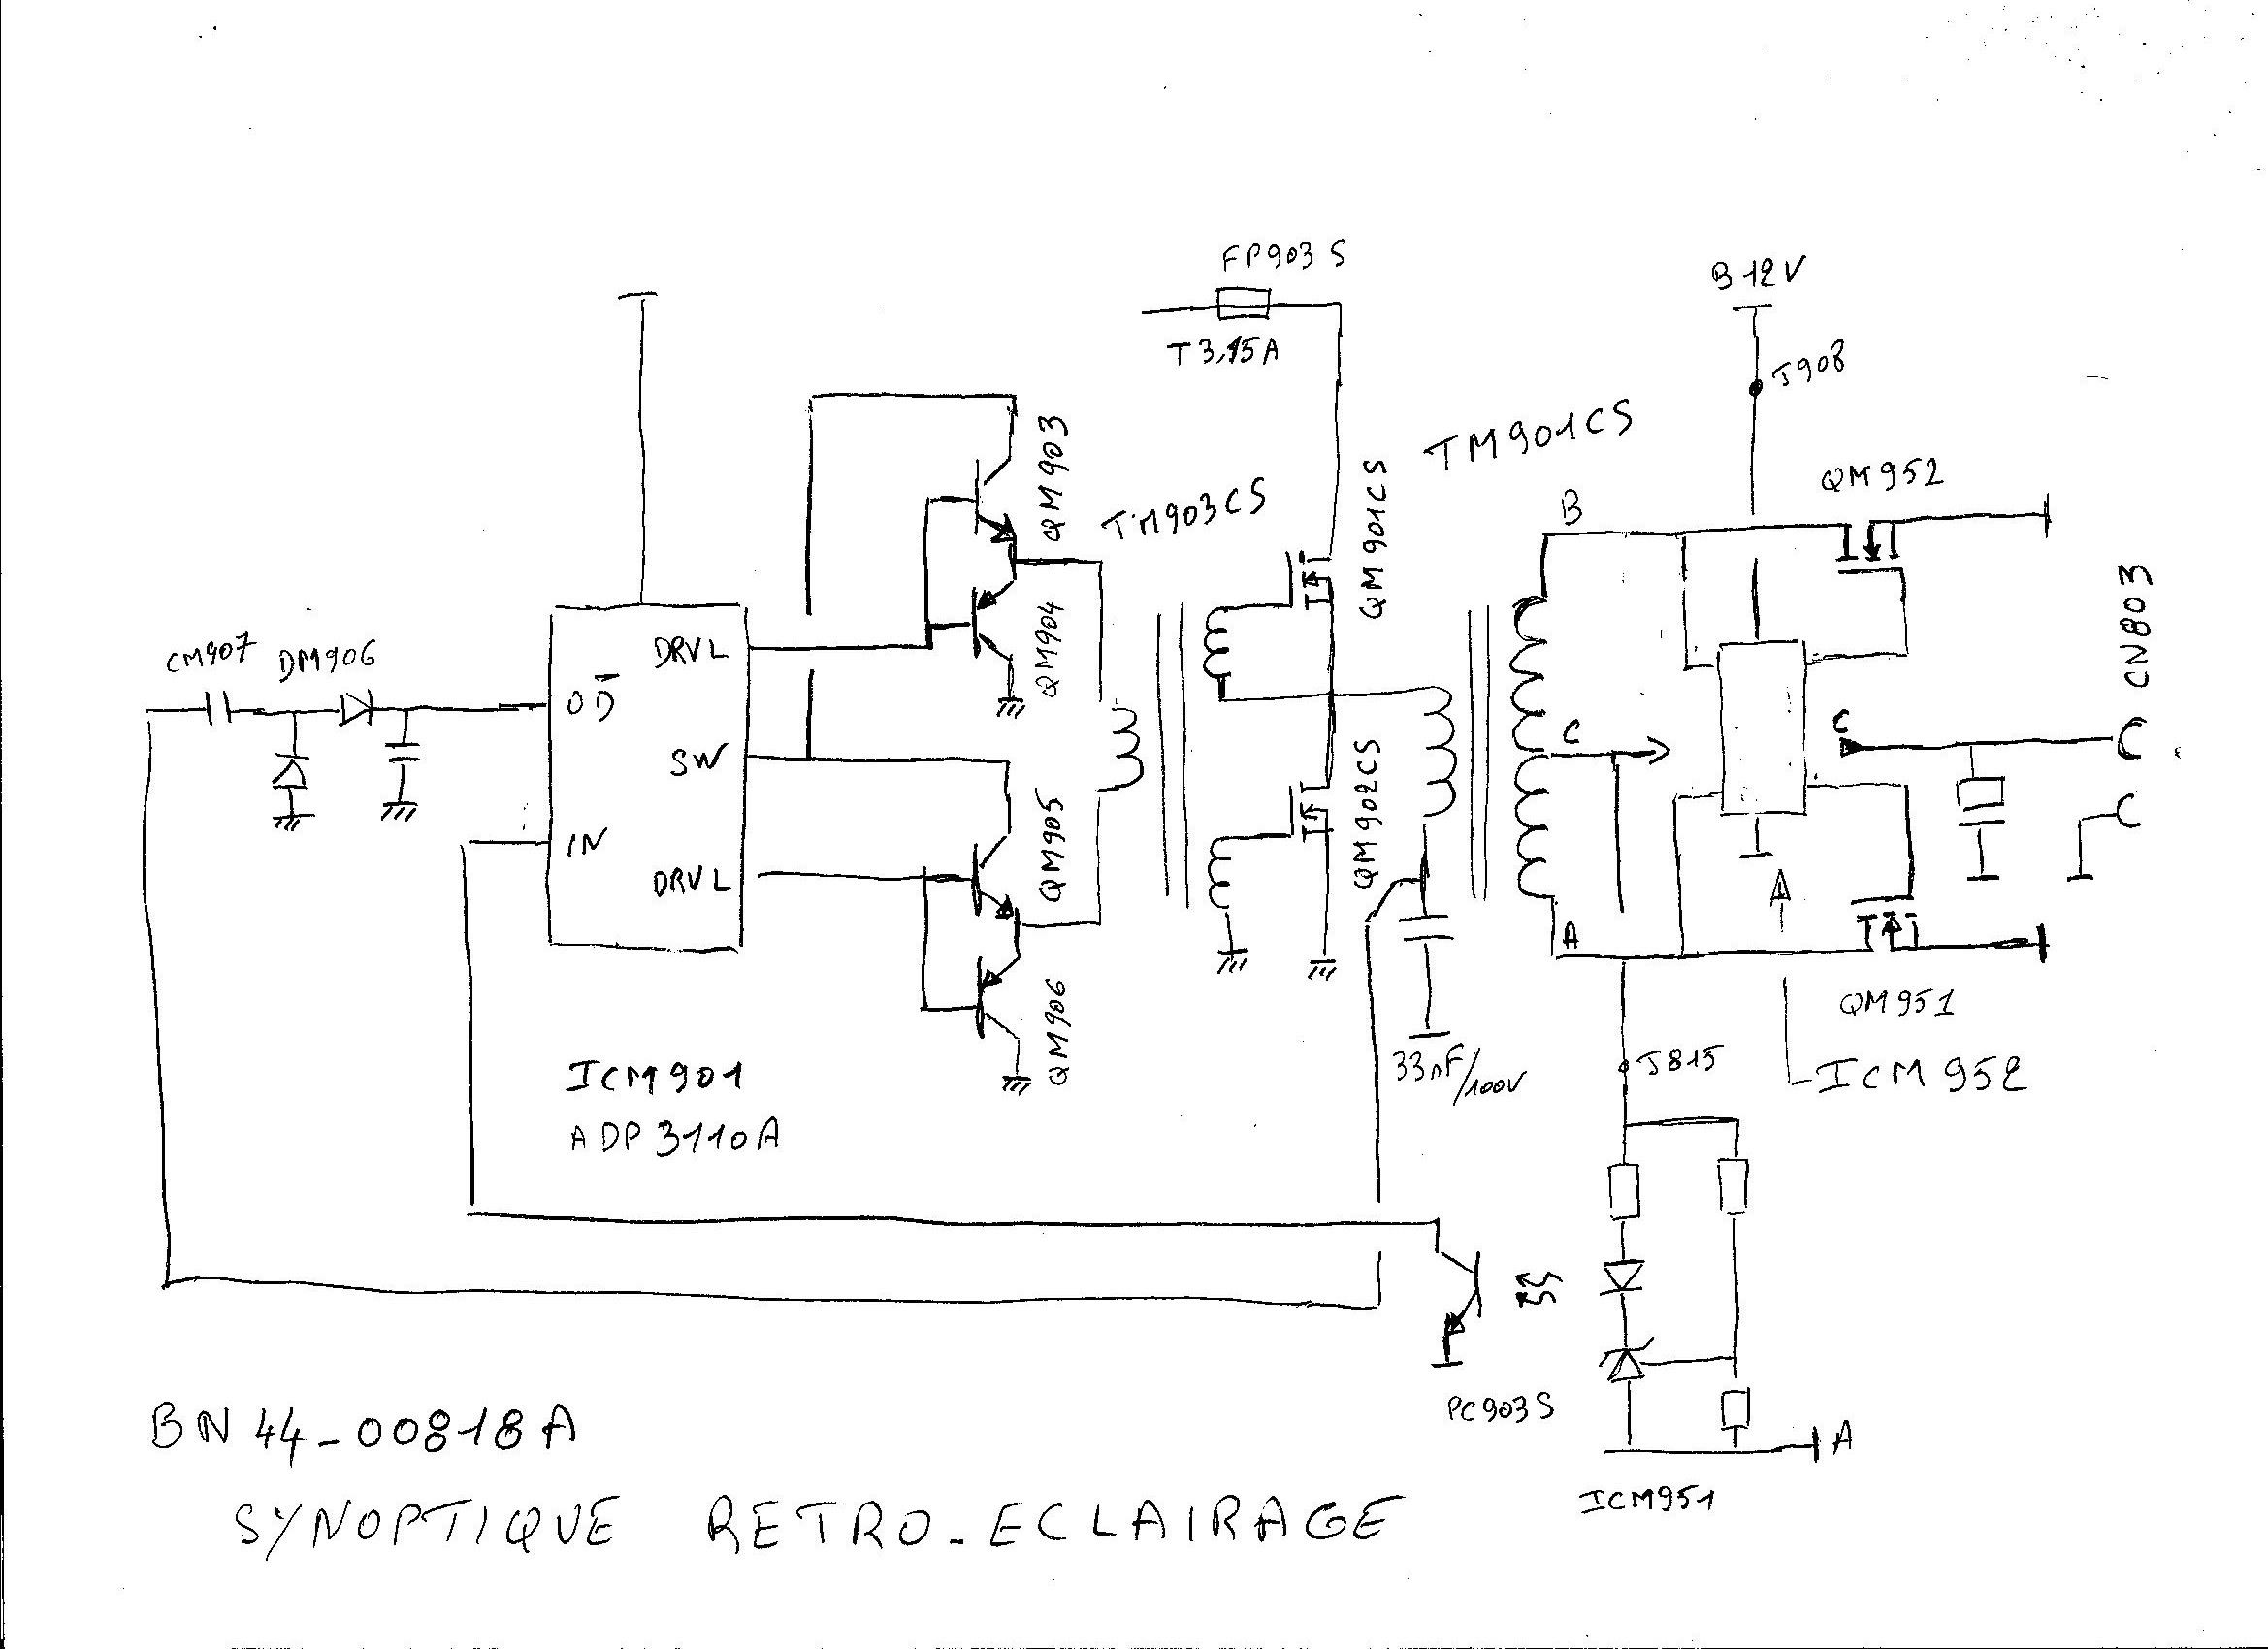 FP903 S
T3,15A
B 12V
J908
TM901CS
QM952
QM903
TM903CS
QM901CS
B
CN803
CM907
DM906
DRVL
OD̅
QM904
C
C
SW
QM905
QM902CS
IN
DRVL
A
QM951
QM906
33nF/100V
J815
ICM952
ICM901
ADP3110A
PC903S
A
ICM951
BN44-00818A
SYNOPTIQUE RETRO-ECLAIRAGE